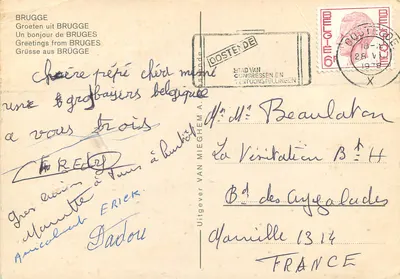 BRUGGE
Groeten uit BRUGGE
Un bonjour de BRUGES
Greetings from BRUGES
Grüsse aus BRÜGGE
chère pépé chéri mémé
une grobaisers belgique
a vous trois
FREDY
Très
a tous à bientôt
Amicalement ERICK.
Dadou
Uitgever VAN MIEGHEM A
OOSTENDE
STAD VAN
CONGRESSEN EN
TENTOONSTELLINGEN
OOSTENDE
X
BELGIE
Mr Mme Beaulaton
La Visitation Bt H
Bd des Aygalades
Marseille 13 14
FRANCE